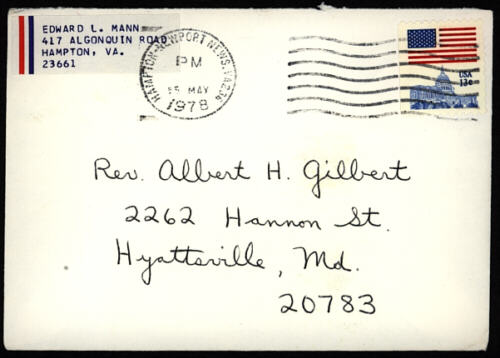 EDWARD L. MANN
417 ALGONQUIN ROAD
HAMPTON, VA.
23661
HAMPTON-NEWPORT NEWS, VA 236
PM
15 MAY
1978
USA
13c
Rev. Albert H. Gilbert
2262 Hannon St.
Hyattsville, Md.
20783